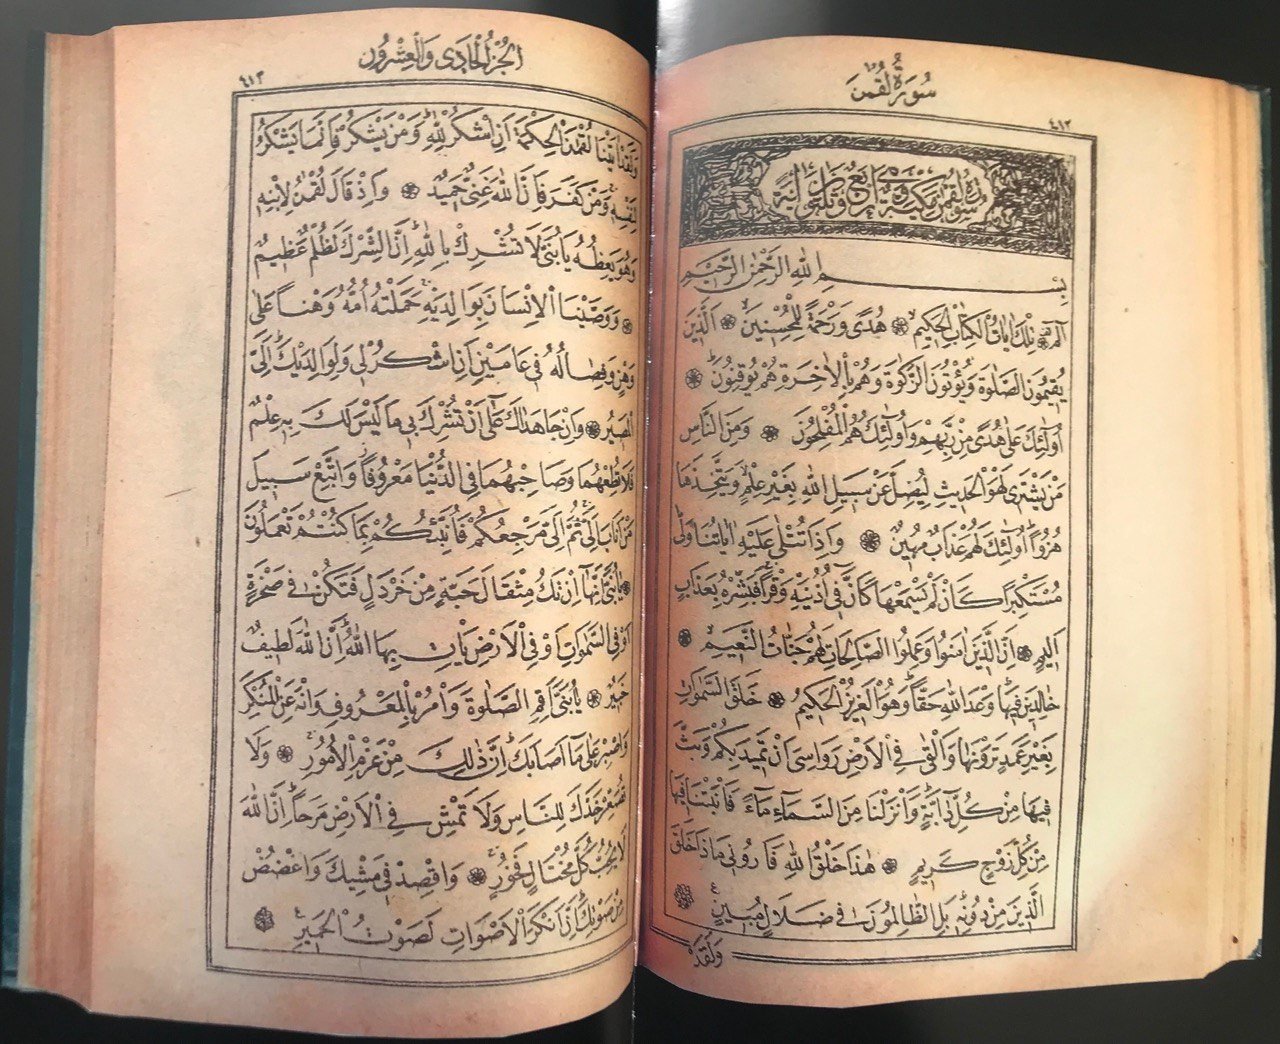 سُورَةُ لُقْمٰنَ
٤١٢
سورة لقمن مكية وهى اربع وثلثون اية
بِسْمِ اللهِ الرَّحْمٰنِ الرَّحٖيمِ
الٓمٓ ۞ تِلْكَ اٰيَاتُ الْكِتَابِ الْحَكٖيمِ ۞ هُدًى وَرَحْمَةً لِلْمُحْسِنٖينَ ۞ اَلَّذٖينَ
يُقٖيمُونَ الصَّلٰوةَ وَيُؤْتُونَ الزَّكٰوةَ وَهُمْ بِالْاٰخِرَةِ هُمْ يُوقِنُونَ ۞
اُولٰٓئِكَ عَلٰى هُدًى مِنْ رَبِّهِمْ وَاُولٰٓئِكَ هُمُ الْمُفْلِحُونَ ۞ وَمِنَ النَّاسِ
مَنْ يَشْتَرٖى لَهْوَ الْحَدٖيثِ لِيُضِلَّ عَنْ سَبٖيلِ اللهِ بِغَيْرِ عِلْمٍ وَيَتَّخِذَهَا
هُزُوًا اُولٰٓئِكَ لَهُمْ عَذَابٌ مُهٖينٌ ۞ وَاِذَا تُتْلٰى عَلَيْهِ اٰيَاتُنَا وَلّٰى
مُسْتَكْبِرًا كَاَنْ لَمْ يَسْمَعْهَا كَاَنَّ فٖى اُذُنَيْهِ وَقْرًا فَبَشِّرْهُ بِعَذَابٍ
اَلٖيمٍ ۞ اِنَّ الَّذٖينَ اٰمَنُوا وَعَمِلُوا الصَّالِحَاتِ لَهُمْ جَنَّاتُ النَّعٖيمِ ۞
خَالِدٖينَ فٖيهَا وَعْدَ اللهِ حَقًّا وَهُوَ الْعَزٖيزُ الْحَكٖيمُ ۞ خَلَقَ السَّمٰوَاتِ
بِغَيْرِ عَمَدٍ تَرَوْنَهَا وَاَلْقٰى فِى الْاَرْضِ رَوَاسِىَ اَنْ تَمٖيدَ بِكُمْ وَبَثَّ
فٖيهَا مِنْ كُلِّ دَابَّةٍ وَاَنْزَلْنَا مِنَ السَّمَاءِ مَاءً فَاَنْبَتْنَا فٖيهَا
مِنْ كُلِّ زَوْجٍ كَرٖيمٍ ۞ هٰذَا خَلْقُ اللهِ فَاَرُونٖى مَاذَا خَلَقَ
الَّذٖينَ مِنْ دُونِهٖ بَلِ الظَّالِمُونَ فٖى ضَلَالٍ مُبٖينٍ ۞
وَلَقَدْ
اَلْجُزْءُ الْحَادِى وَالْعِشْرُونَ
٤١٣
وَلَقَدْ اٰتَيْنَا لُقْمٰنَ الْحِكْمَةَ اَنِ اشْكُرْ لِلّٰهِ وَمَنْ يَشْكُرْ فَاِنَّمَا يَشْكُرُ
لِنَفْسِهٖ وَمَنْ كَفَرَ فَاِنَّ اللهَ غَنِىٌّ حَمٖيدٌ ۞ وَاِذْ قَالَ لُقْمٰنُ لِابْنِهٖ
وَهُوَ يَعِظُهُ يَابُنَىَّ لَا تُشْرِكْ بِاللهِ اِنَّ الشِّرْكَ لَظُلْمٌ عَظٖيمٌ
۞ وَوَصَّيْنَا الْاِنْسَانَ بِوَالِدَيْهِ حَمَلَتْهُ اُمُّهُ وَهْنًا عَلٰى
وَهْنٍ وَفِصَالُهُ فٖى عَامَيْنِ اَنِ اشْكُرْ لٖى وَلِوَالِدَيْكَ اِلَىَّ
الْمَصٖيرُ ۞ وَاِنْ جَاهَدَاكَ عَلٰى اَنْ تُشْرِكَ بٖى مَا لَيْسَ لَكَ بِهٖ عِلْمٌ
فَلَا تُطِعْهُمَا وَصَاحِبْهُمَا فِى الدُّنْيَا مَعْرُوفًا وَاتَّبِعْ سَبٖيلَ
مَنْ اَنَابَ اِلَىَّ ثُمَّ اِلَىَّ مَرْجِعُكُمْ فَاُنَبِّئُكُمْ بِمَا كُنْتُمْ تَعْمَلُونَ
۞ يَابُنَىَّ اِنَّهَا اِنْ تَكُ مِثْقَالَ حَبَّةٍ مِنْ خَرْدَلٍ فَتَكُنْ فٖى صَخْرَةٍ
اَوْ فِى السَّمٰوَاتِ اَوْ فِى الْاَرْضِ يَاْتِ بِهَا اللهُ اِنَّ اللهَ لَطٖيفٌ
خَبٖيرٌ ۞ يَابُنَىَّ اَقِمِ الصَّلٰوةَ وَاْمُرْ بِالْمَعْرُوفِ وَانْهَ عَنِ الْمُنْكَرِ
وَاصْبِرْ عَلٰى مَا اَصَابَكَ اِنَّ ذٰلِكَ مِنْ عَزْمِ الْاُمُورِ ۞ وَلَا
تُصَعِّرْ خَدَّكَ لِلنَّاسِ وَلَا تَمْشِ فِى الْاَرْضِ مَرَحًا اِنَّ اللهَ
لَا يُحِبُّ كُلَّ مُخْتَالٍ فَخُورٍ ۞ وَاقْصِدْ فٖى مَشْيِكَ وَاغْضُضْ
مِنْ صَوْتِكَ اِنَّ اَنْكَرَ الْاَصْوَاتِ لَصَوْتُ الْحَمٖيرِ ۞